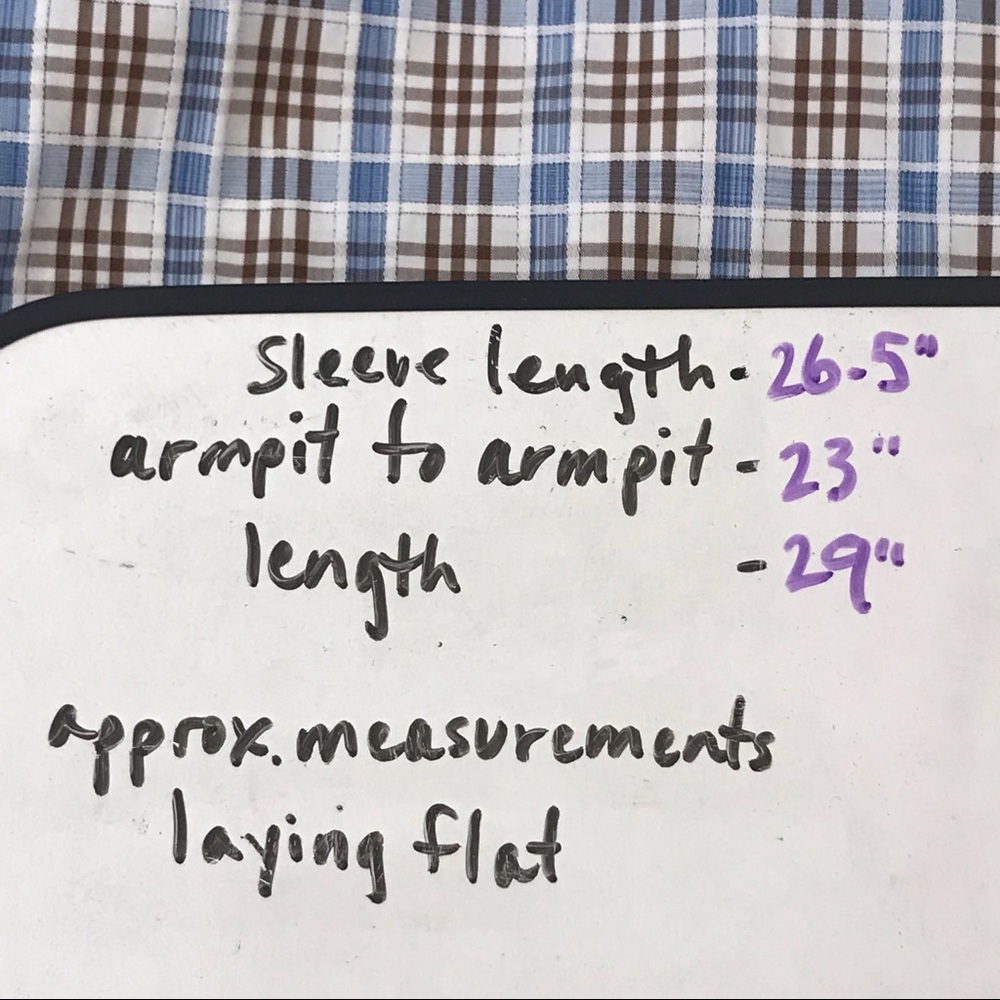 Sleeve length - 26.5"
armpit to armpit - 23"
length - 29"
approx. measurements
laying flat